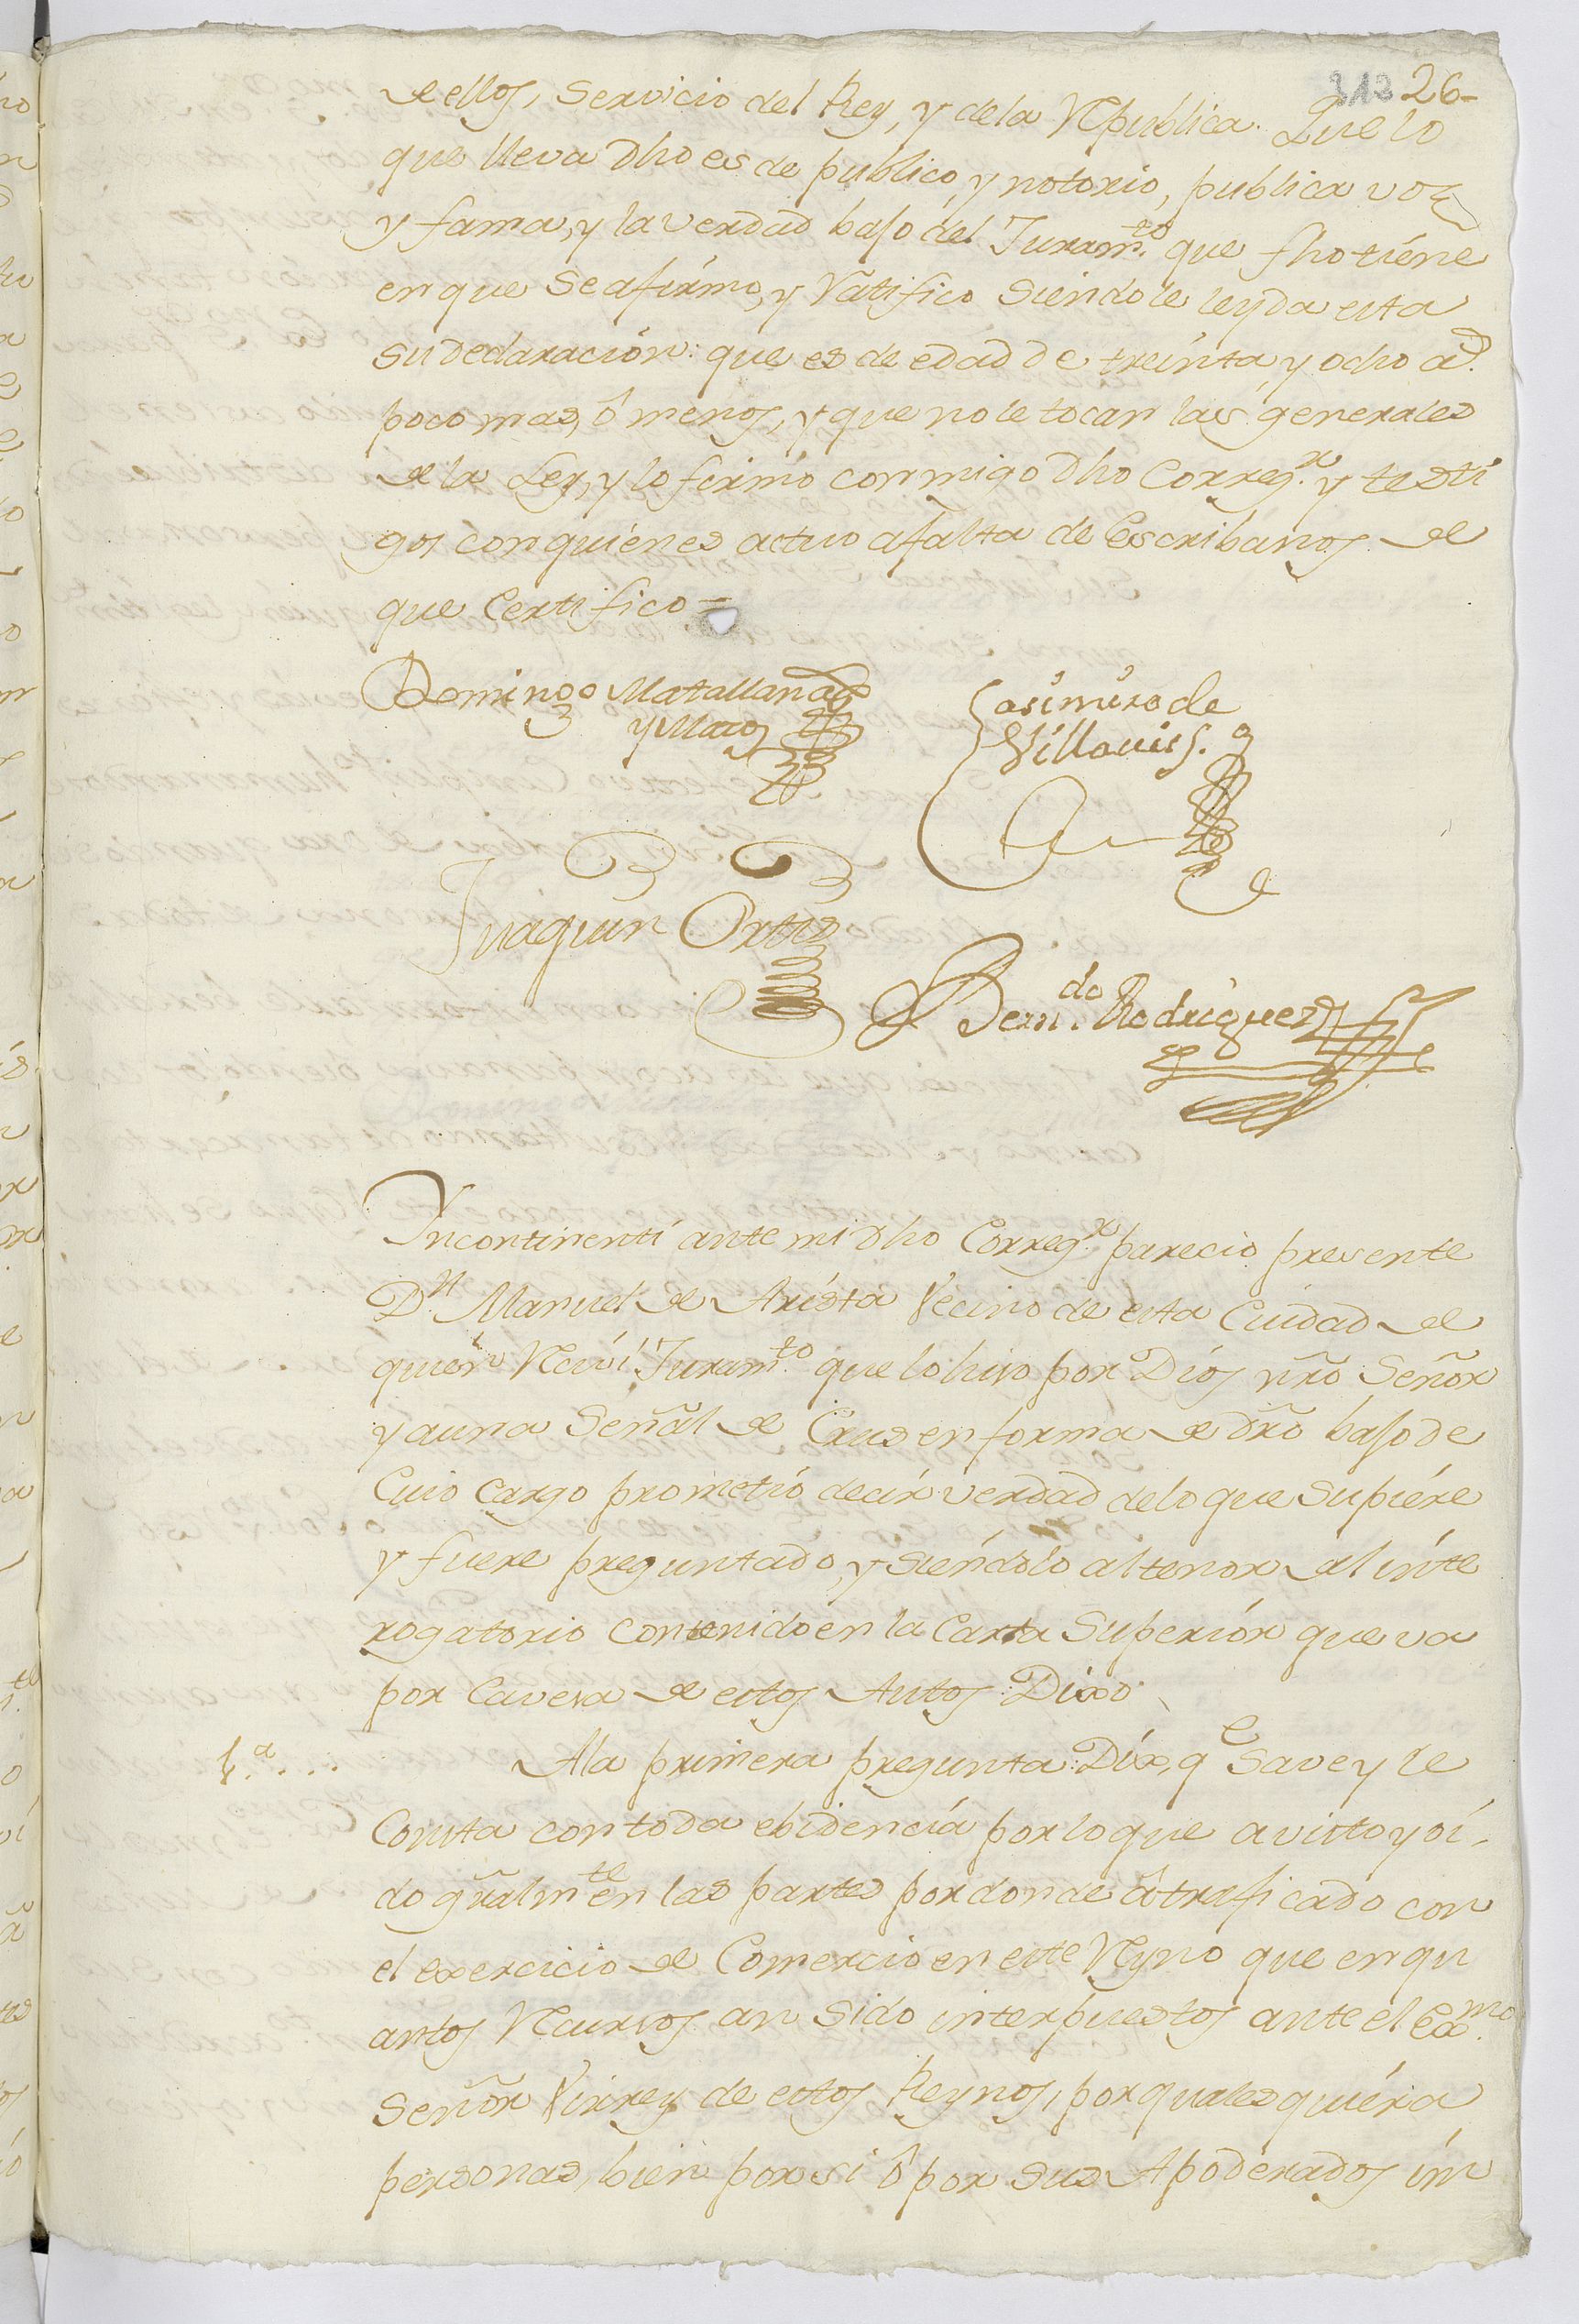 313 26-
de ellos, Servicio del Rey, y de la Republica. Que lo
que lleva dho es de publico, y notorio, publica voz
y fama, y la verdad bajo del Juram.to que fho tiene
en que se afirmo, y Ratifico siendole leyda esta
su declaracion: que es de edad de treinta, y ocho a.s
poco mas, ô menos, y que no le tocan las generales
de la Ley, y lo firmo conmigo dho Correg.r y testi
gos con quienes actuo a falta de Escribanos de
que Certifico=
Domingo Matallana
y Mazo
Casimiro de
Villavis.
Juaquin Ortis
Bern.do Rodriguez
Yncontinenti ante mi dho Correg.r parecio presente
D.n Manuel de Arista Vecino de esta Ciudad de
quien Reciví Juram.to que lo hiso por Dios nrõ Señor
y a una Señal de Crus en forma de dr̃o bajo de
Cuio cargo prometió decir verdad de lo que Supiere
y fuere preguntado, y siendolo al tenor del inte
rogatorio contenido en la Carta Superior que va
por Cavesa de estos Autos Dixo
1.a .... A la primera pregunta: Dixo, q.e Save y le
Consta con toda ebidencia por lo que a visto y oí-
do gr̃alm.te en las partes por donde â traficado con
el exercicio de Comercio en este Reyno que en qu
antos Recursos an sido interpuestos ante el Ex.mo
Señor Virrey de estos Reynos, por qualesquiera
personas, bien por si ô por sus Apoderados in